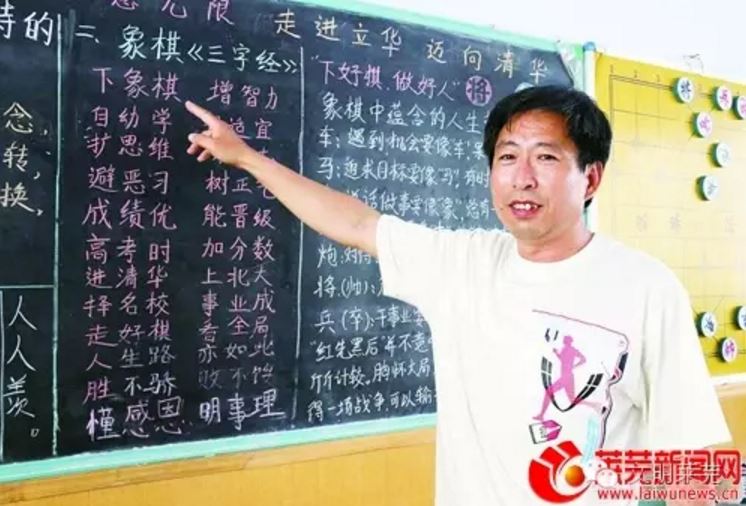 走进立华 迈向清华
二、象棋《三字经》
下象棋 增智力
自幼学 适宜
扩思维
避恶习 树正
成绩优 能晋级
高考时 加分数
进清华 上北大
择名校 事业成
走好棋 看全局
人生路 亦如此
胜不骄 败不馁
懂感恩 明事理
"下好棋、做好人" 将
象棋中蕴含的人生
车:遇到机会要像车,
马:追求目标要像"马",有时
说话做事要像"象",
炮:对待
将(帅):
兵(卒):干事业
"红先黑后"并不意
斤斤计较,胸怀大局
得一场战争,可以输
念,
转,
换,
人
人
羡
次。
莱芜新闻网
www.laiwunews.cn
文明莱芜